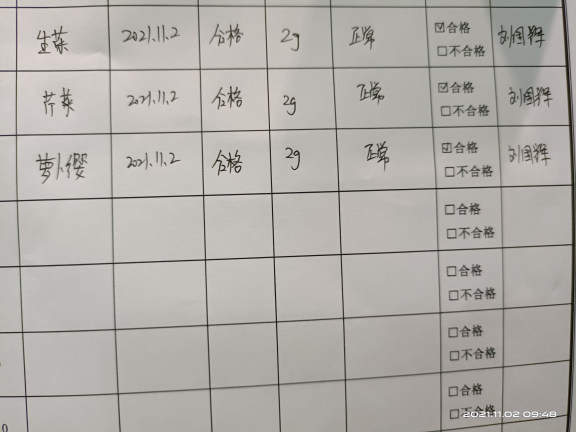 生菜 2021.11.2 合格 2g 正常 ☑合格 刘国辉
□不合格
芹菜 2021.11.2 合格 2g 正常 ☑合格 刘国辉
□不合格
萝卜缨 2021.11.2 合格 2g 正常 ☑合格 刘国辉
□不合格
□合格
□不合格
□合格
□不合格
□合格
□不合格
□合格
□不合格
2021.11.02 09:48